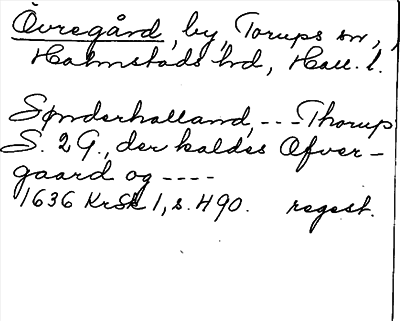 Övregård, by, Torups sn,
Halmstads hd, Hall. l.
Sønderhalland, --- Thorup
S. 2 G., der kaldes Øfver-
gaard og ----
1636 KrSk 1, s. 490. regest.